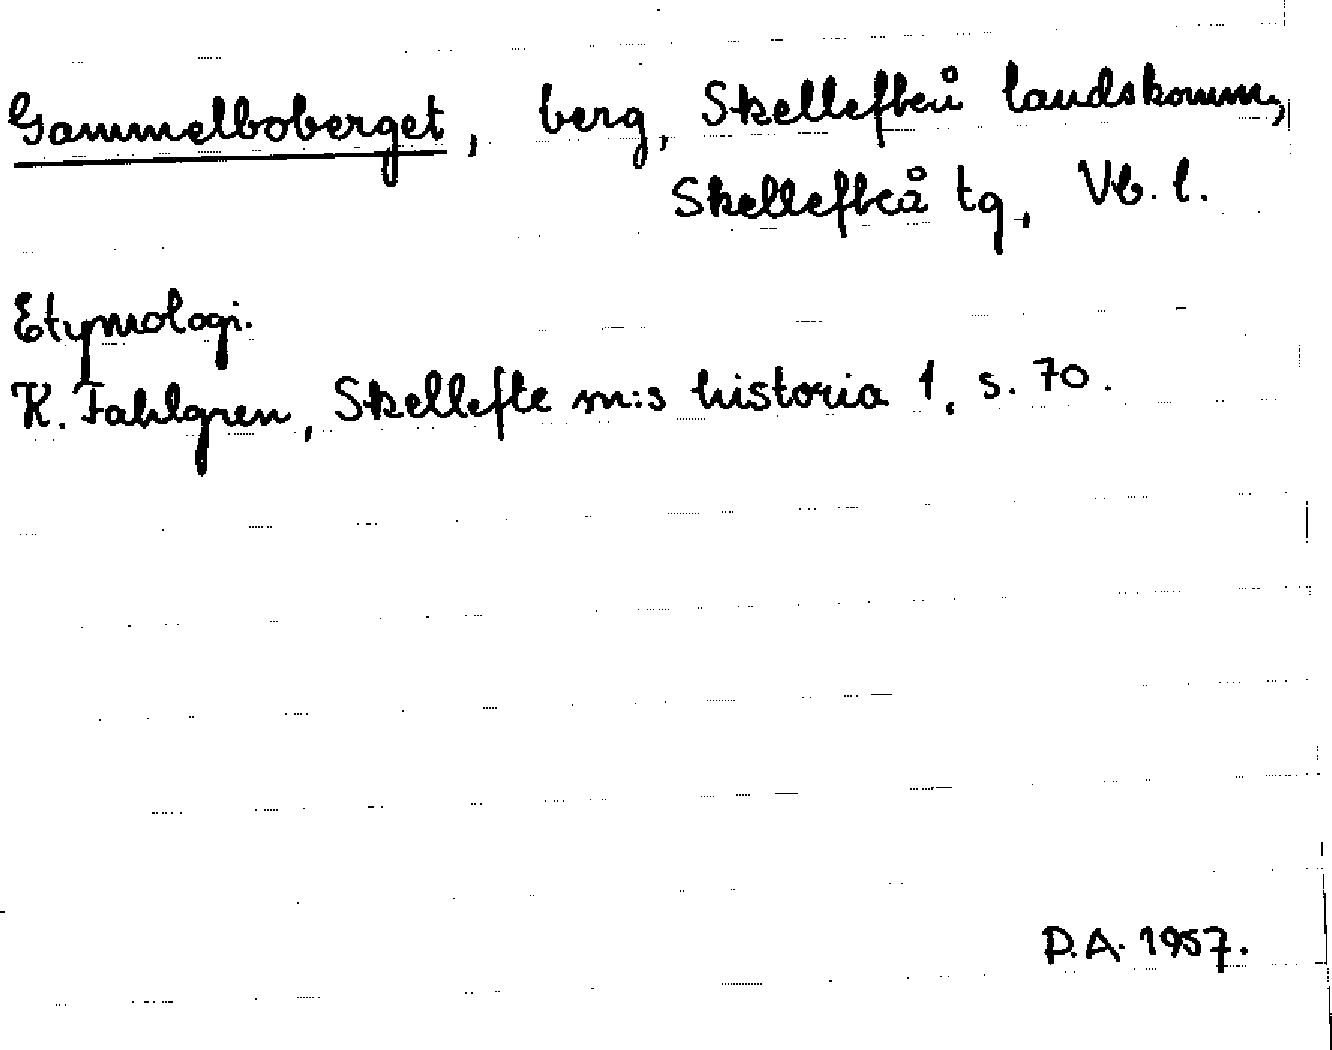 Gammelboberget, berg, Skellefteå landskomm,
Skellefteå tg, Vb. l.
Etymologi.
K. Fahlgren, Skellefte m:s historia 1, s. 70.
D.A. 1957.